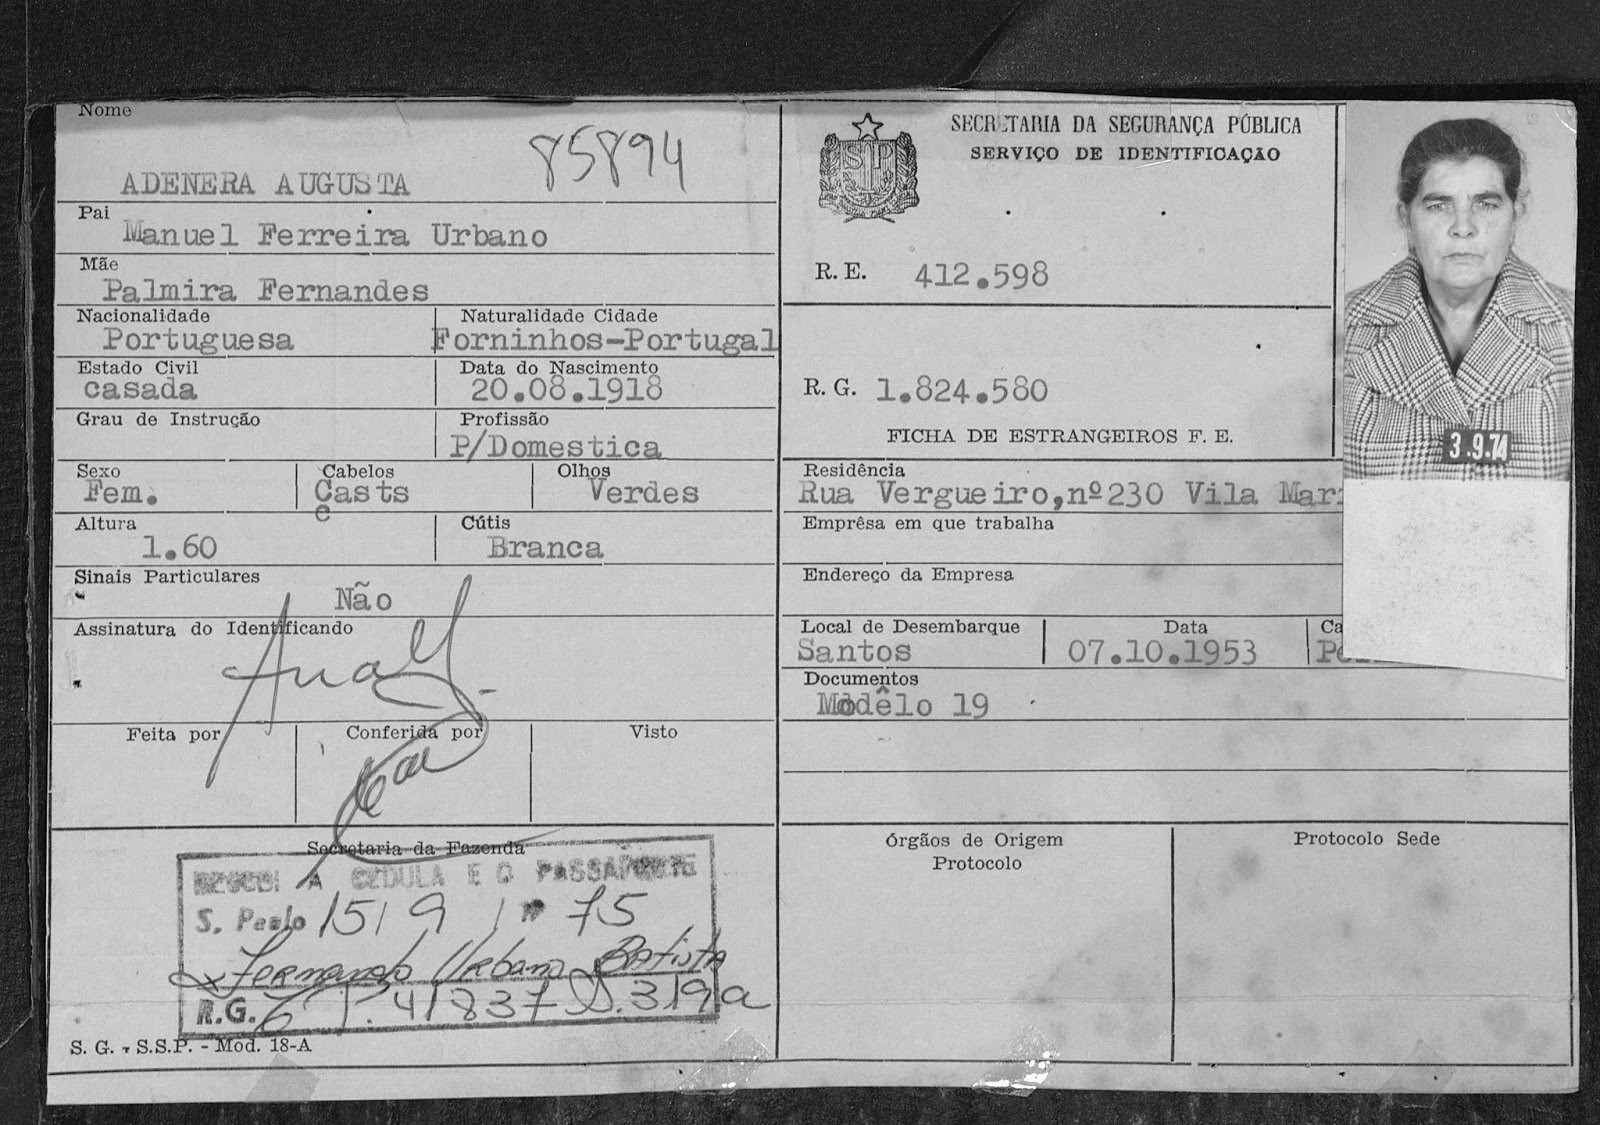 Nome
85894
ADENERA AUGUSTA
Pai
Manuel Ferreira Urbano
Mãe
Palmira Fernandes
Nacionalidade
Portuguesa
Naturalidade Cidade
Forninhos-Portugal
Estado Civil
casada
Data do Nascimento
20.08.1918
Grau de Instrução
Profissão
P/Domestica
Sexo
Fem.
Cabelos
Casts
e
Olhos
Verdes
Altura
1.60
Cútis
Branca
Sinais Particulares
Não
Assinatura do Identificando
Feita por
Conferida por
Visto
Secretaria da Fazenda
A CEDULA E O PASSAPORTE
S. Paulo 15/9/75
Fernando Urbano Batista
R.G.
S. G. - S.S.P. - Mod. 18-A
SECRETARIA DA SEGURANÇA PÚBLICA
SERVIÇO DE IDENTIFICAÇÃO
SP
R. E. 412.598
R. G. 1.824.580
FICHA DE ESTRANGEIROS F. E.
3.9.74
Residência
Rua Vergueiro,nº230 Vila Mar
Emprêsa em que trabalha
Endereço da Empresa
Local de Desembarque
Santos
Data
07.10.1953
Ca
Documentos
Modêlo 19
órgãos de Origem
Protocolo
Protocolo Sede